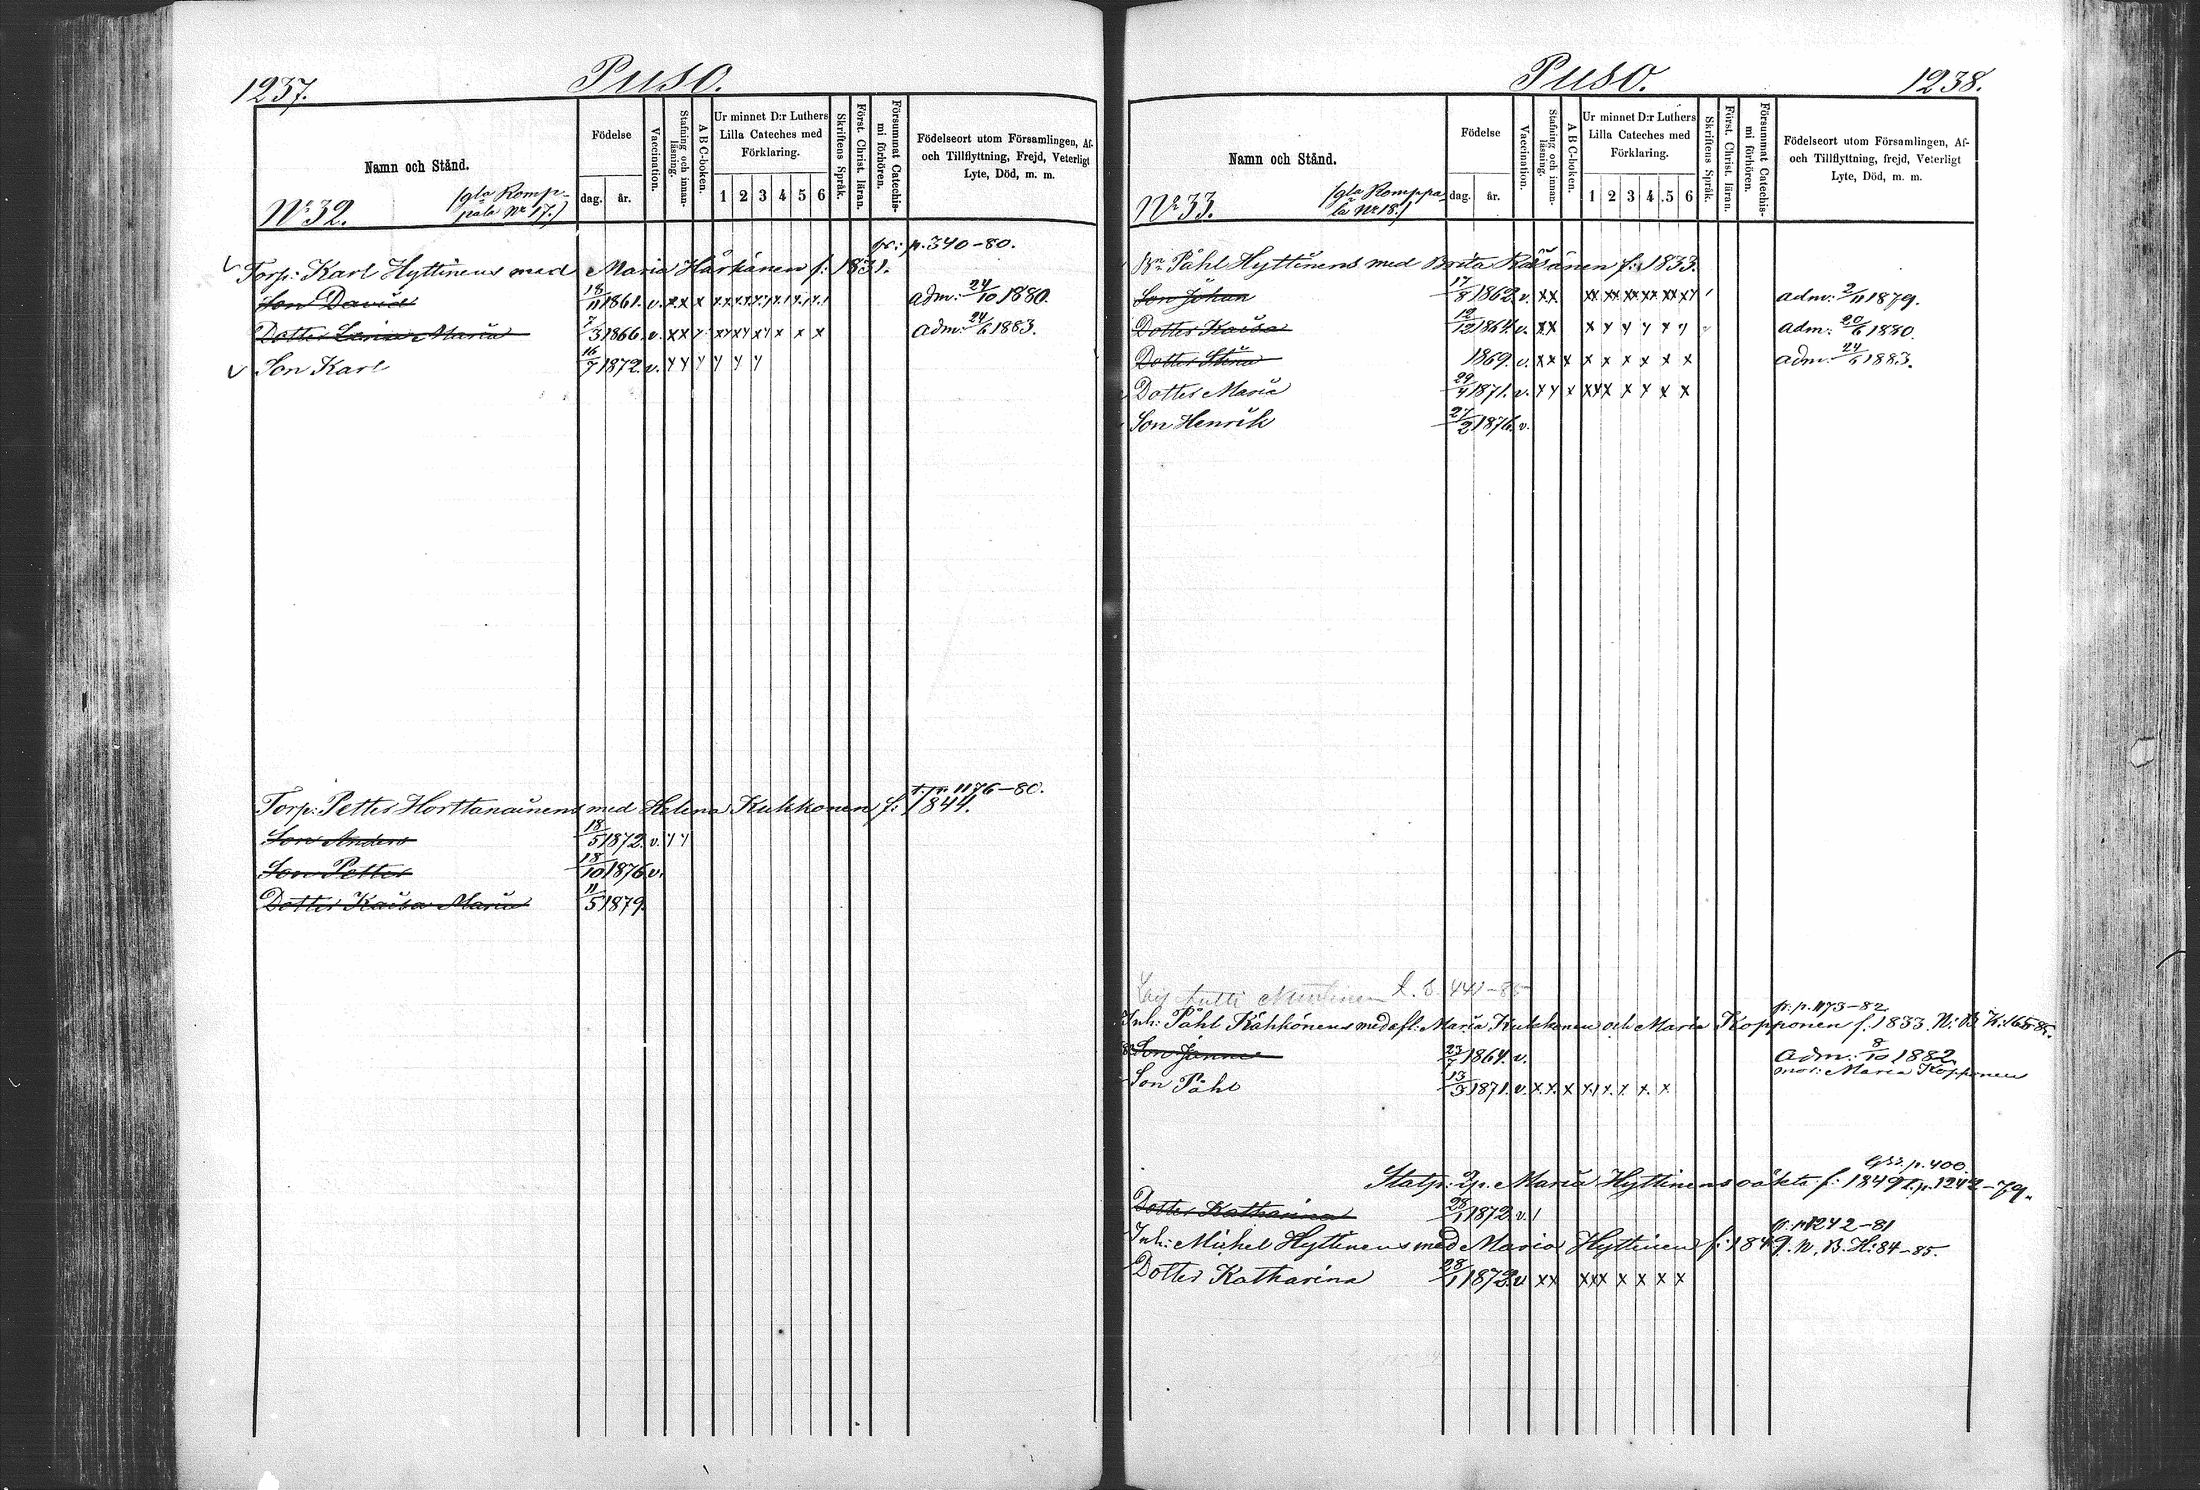 1237.
Puso.
Namn och Stånd.
Födelse
dag.
år.
Vaccination.
Stafning och innanläsning.
A B C-boken.
Ur minnet D:r Luthers
Lilla Cateches med
Förklaring.
1 2 3 4 5 6
Skriftens Språk.
Först. Christ. läran.
Försummat Catechismi förhören.
Födelseort utom Församlingen, Af-
och Tillflyttning, Frejd, Veterligt
Lyte, Död, m. m.
No 32.
(gla Romp-
pala No 17.)
fr: p. 340-80.
Torp: Karl Hyttinens med Maria Härkänen f: 1831.
Son David 18/11 1861. v. xx x adm: 24/10 1880.
Dotter Maria 7/3 1866. v. xx adm: 24/6 1883.
Son Karl 16/7 1872. v. y y y y y y
t. p. 1176-80.
Torp: Petter Horttanainens med Helena Kukkonen f: 1844.
Son Anders 18/5 1872. v. y y
Son Petter 18/10 1876 v.
Dotter Kaisa Maria 11/5 1879.
Puso.
1238.
Namn och Stånd.
Födelse
dag.
år.
Vaccination.
Stafning och innanläsning.
A B C-boken.
Ur minnet D:r Luthers
Lilla Cateches med
Förklaring.
1 2 3 4 5 6
Skriftens Språk.
Först. Christ. läran.
Försummat Catechismi förhören.
Födelseort utom Församlingen, Af-
och Tillflyttning, frejd, Veterligt
Lyte, Död, m. m.
No 33.
(gla Romppa
la No 18.)
Bn Påhl Hyttinens med Brita Räsänen f: 1833.
Son Johan 17/8 1862 v. xx adm: 2/11 1879.
Dotter Kaisa 12/12 1864. v. xx x y y y y y adm: 20/6 1880.
Dotter Stina 1869. v. xx x x x x x x x adm: 24/6 1883.
Dotter Maria 29/4 1871. v. y y x xxx x y x x
Son Henrik 27/2 1876. v.
441-85
fr. p. 1173-82
Inh: Påhl Kähkönens med afl: Maria Kukkonen och Maria Kopponen f. 1833. N: B. K: 165-85.
Son Janne 23/7 1864. v. Adm: 8/10 1882
mor: Maria Kopponen
Son Påhl 13/3 1871. v. x x x x x x x x
p. 400.
Maria Hyttinens oäkta f: 1849 t. p. 1242-79.
Dotter Katharina 28/1 1872 v. 1
fr: p 1242-81
Inh: Michel Hyttinens med Maria Hyttinen f: 1849. N. B. K: 84-85.
Dotter Katharina 28/1 1872. v xx xxx x x x x